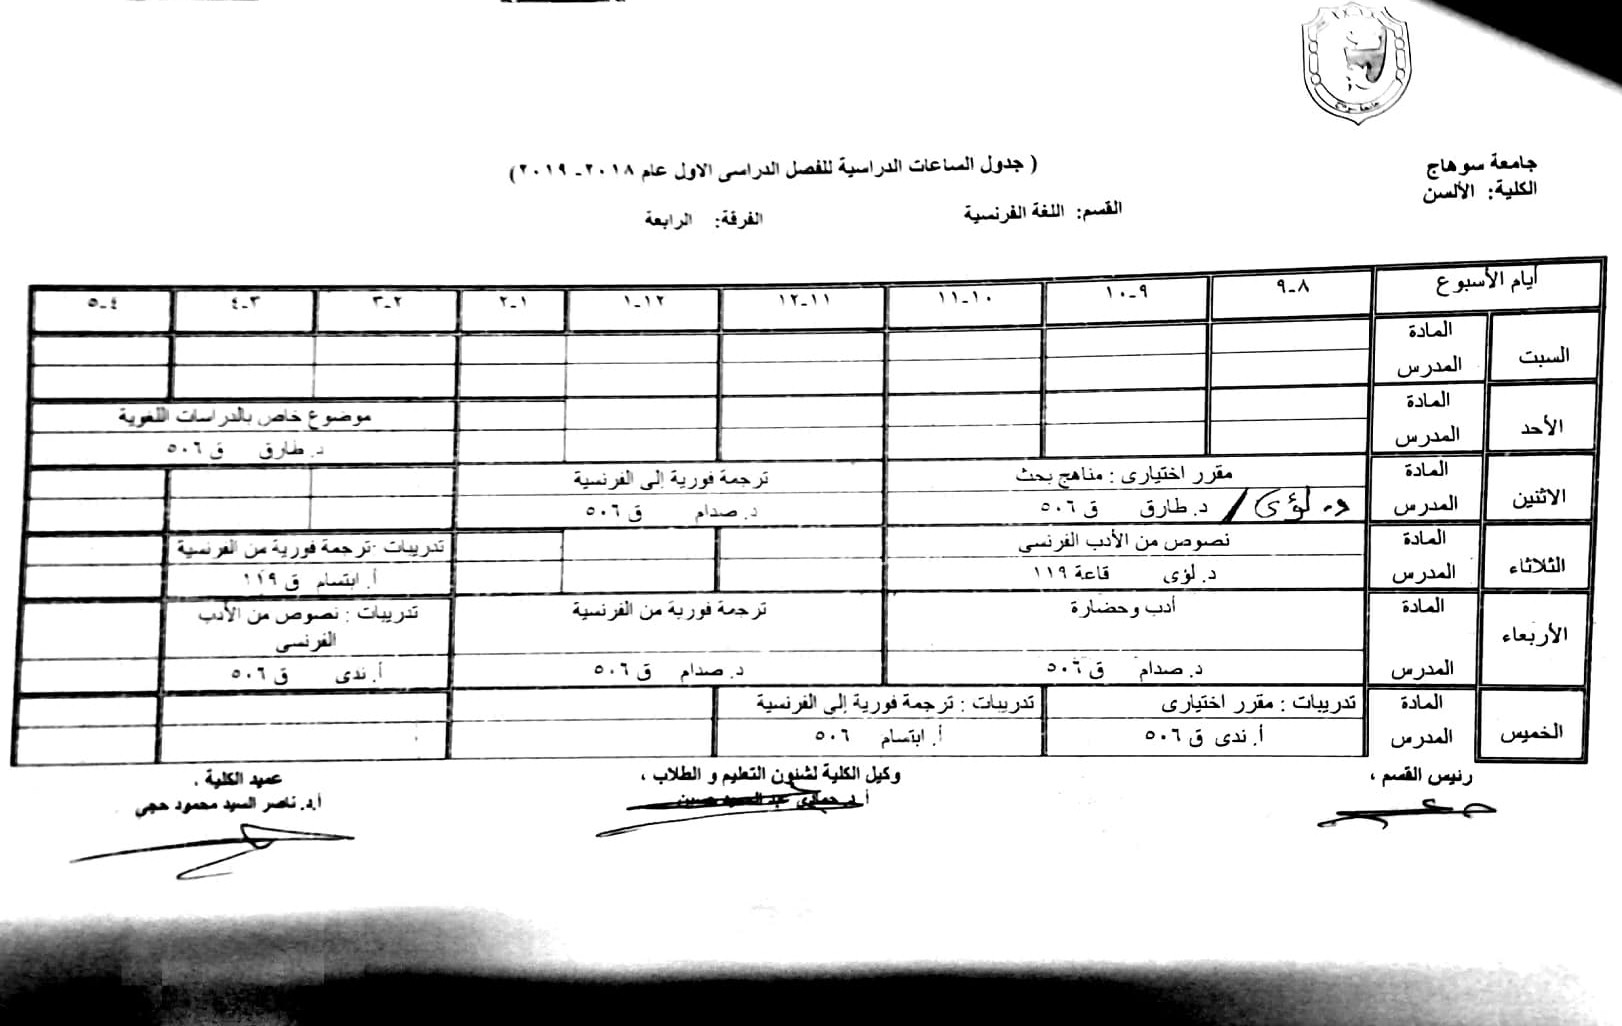 جامعة سوهاج
جامعة سوهاج
الكلية: الألسن
( جدول الساعات الدراسية للفصل الدراسى الاول عام ٢٠١٨ـ ٢٠١٩)
القسم: اللغة الفرنسية
الفرقة: الرابعة
أيام الأسبوع ٨ـ٩ ٩ـ١٠ ١٠ـ١١ ١١ـ١٢ ١٢ـ١ ١ـ٢ ٢ـ٣ ٣ـ٤ ٤ـ٥
السبت
المادة
المدرس
الأحد
المادة موضوع خاص بالدراسات اللغوية
المدرس د. طارق ق ٥٠٦
الاثنين
المادة مقرر اختيارى : مناهج بحث ترجمة فورية إلى الفرنسية
المدرس د. لؤى / د. طارق ق ٥٠٦ د. صدام ق ٥٠٦
الثلاثاء
المادة نصوص من الأدب الفرنسى تدريبات -ترجمة فورية من الفرنسية
المدرس د. لؤى قاعة ١١٩ أ. ابتسام ق ١١٩
الأربعاء
المادة أدب وحضارة ترجمة فورية من الفرنسية تدريبات : نصوص من الأدب
الفرنسى
المدرس د. صدام ق ٥٠٦ د. صدام ق ٥٠٦ أ. ندى ق ٥٠٦
الخميس
المادة تدريبات : مقرر اختيارى تدريبات : ترجمة فورية إلى الفرنسية
المدرس أ. ندى ق ٥٠٦ أ. ابتسام ٥٠٦
رئيس القسم ،
وكيل الكلية لشئون التعليم و الطلاب ،
عميد الكلية ،
أ.د. ناصر السيد محمود حجى